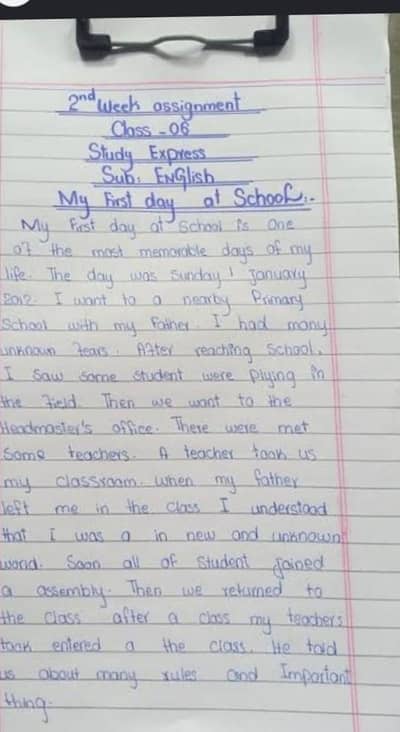 2nd Week assignment
Class - 06
Study Express
Sub: English
My First day at School:-
My First day at School is One
of the most memorable days of my
life. The day was Sunday 1 January
2012. I want to a nearby Primary
School with my Father. I had many
unknown Fears. After reaching School,
I Saw Some Student were Plying in
the Field. Then we want to the
Headmaster's office. There were met
Some teachers. A teacher took us
miy classroom. when my father
left me in the Class I understood
that I was a in new and unknown
world. Soon all of Student joined
a assembly. Then we returned to
the Class after a class my teachers
took entered a the class. He told
us about many rules and Important
thing.